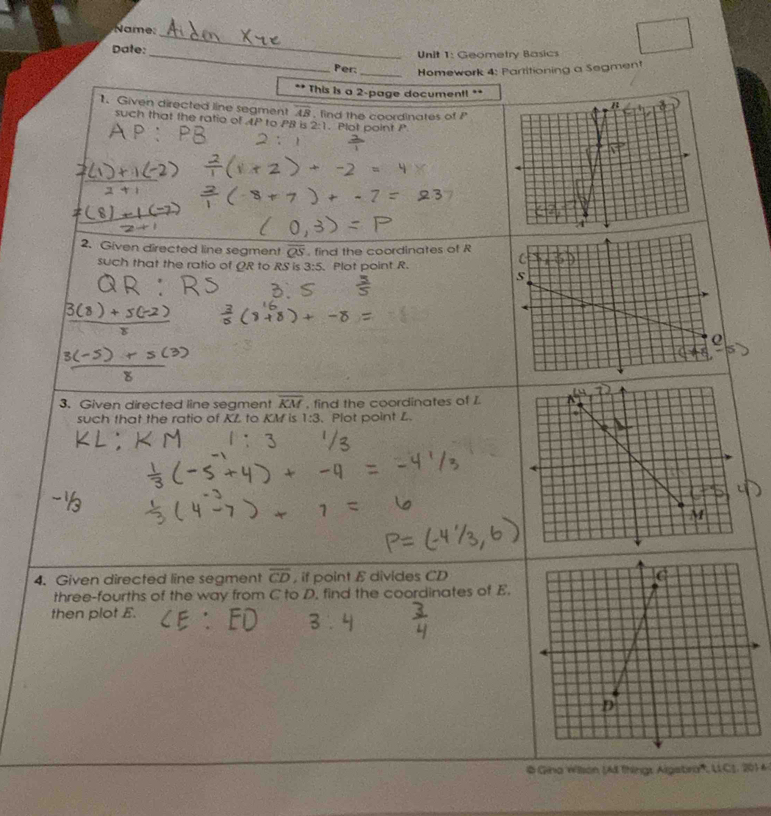 Name: Aiden
Date:
Per:
Unit 1: Geometry Basics
Homework 4: Partitioning a Segment
** This is a 2-page document! **
1. Given directed line segment AB, find the coordinates of P
such that the ratio of AP to PB is 2:1. Plot point P.
AP : PB 2 : 1 2/1
2(1)+1(-2) / 2+1
2/1 (1+2) + -2 = 4
2(8)+1(-7) / 2+1
2/1 (8+7) + -7 = 23
(0,3) = P
B
P
A
2. Given directed line segment QS, find the coordinates of R
such that the ratio of QR to RS is 3:5. Plot point R.
QR : RS 3:5 3/5
3(8) + 5(-2) / 8
3/5 (8+8) + -8 =
16
3(-5) + 5(3) / 8
S
Q
3. Given directed line segment KM, find the coordinates of L
such that the ratio of KL to KM is 1:3. Plot point L.
KL : KM 1:3 1/3
-1
1/3 (-5+4) + -4 = -4 1/3
-1/3
-3
1/3 (4-7) + 7 = 6
P= (-4 1/3, 6)
M
4. Given directed line segment CD, if point E divides CD
three-fourths of the way from C to D, find the coordinates of E,
then plot E.
CE : ED 3:4 3/4
C
D
© Gina Wilson (All Things Algebra®, LLC), 2014-